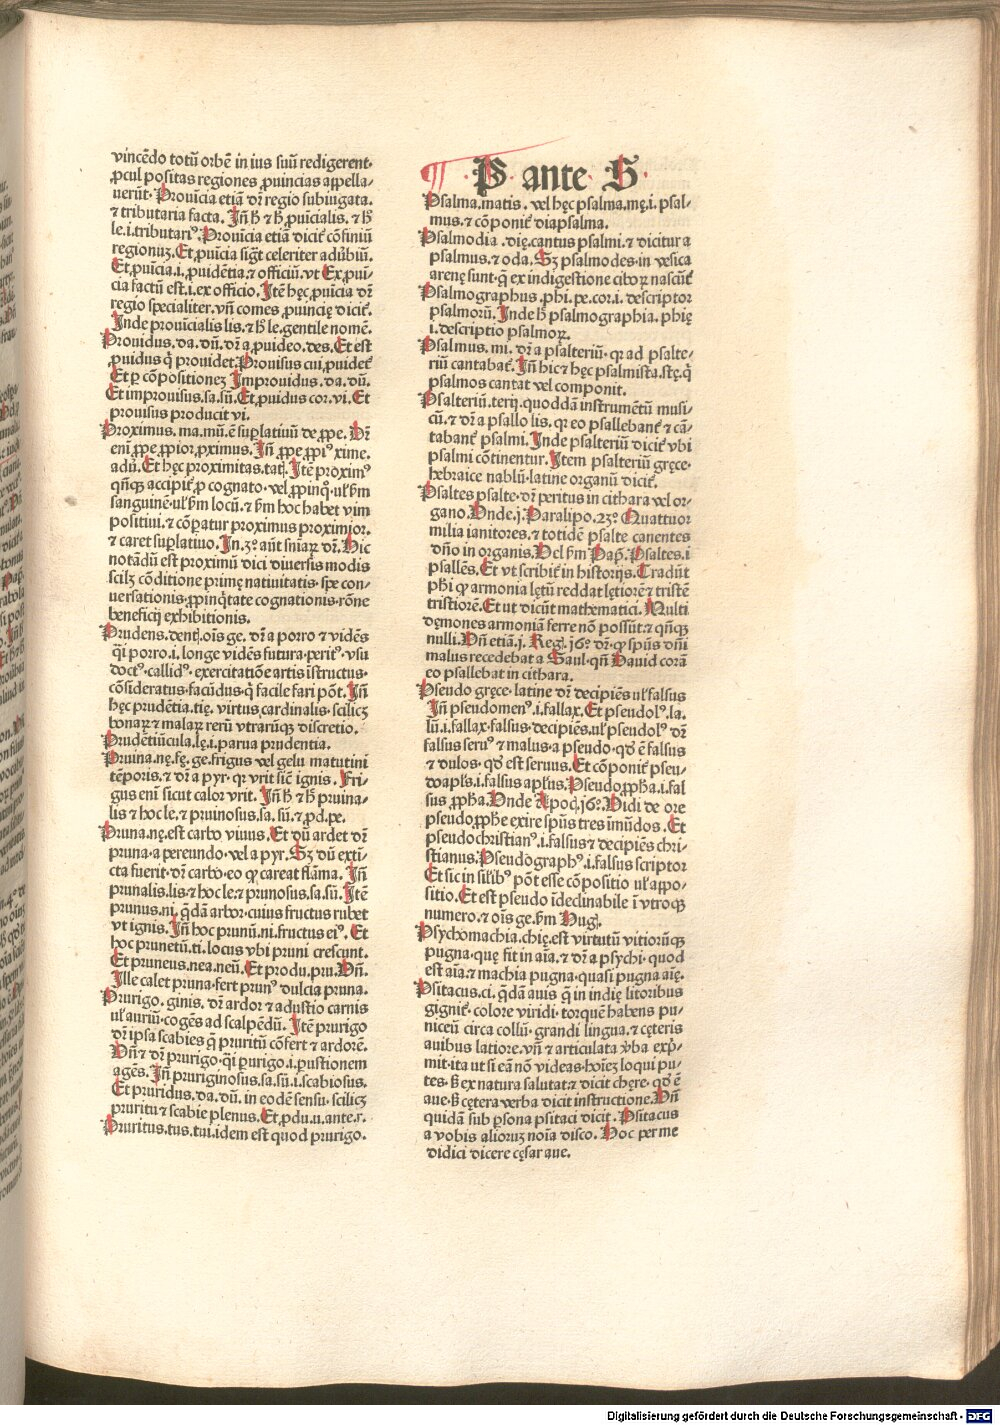 vincēdo totū orbē in ius suū redigerent·
ꝓcul positas regiones ꝓuincias appella-
uerūt· Prouīcia etiā dr̄ regio subiugata.
⁊ tributaria facta. Jn̄ h̄ ⁊ h̄ ꝓuīcialis. ⁊ h̄
le.i.tributariꝰ. Prouīcia etiā dicit᷑ cōfiniū
regionuꝫ. Et ꝓuīcia sigt̄ celeriter aduꝰbiū.
Et ꝓuicia.i.ꝓuidētia ⁊ officiū. vt Ex ꝓui-
cia factū est.i.ex officio. Jtē hęc ꝓuīcia dr̄
regio specialiter. vn̄ comes ꝓuincię dicit᷑.
Jnde prouīcialis lis. ⁊ h̄ le. gentile nomē.
Prouidus.da.dū. dr̄ a ꝓuideo.des. Et est
ꝓuidus q̄ prouidet. Prouisus cui ꝓuidet᷑
Et ꝑ cōpositioneꝫ Jmprouidus.da.dū.
Et improuisus.sa.sū. Et ꝓuidus cor.vi. Et
prouisus producit vi.
Proximus.ma.mū. ē suꝑlatiuū de ꝓpe. Dr̄
enī ꝓpe ꝓpior ꝓximus. Jn̄ ꝓpe ꝓpiꝰ xime.
aduꝰ. Et hęc proximitas.tatꝭ. Jtē proximꝰ
qn̄qꝫ accipit᷑ ꝑ cognato· vel ꝓpinqͦ. ul' ẜm
sanguinē· ul' ẜm locū. ⁊ ẜm hoc habet vim
positiui. ⁊ cōꝑatur proximus proximior.
⁊ caret suꝑlatiuo. Jn.3º. aūt sniaꝝ dr̄. Hic
notādū est proximū dici diuersis modis
scilꝫ cōditione primę natiuitatis· spe con-
uersationis. ꝓpinq̄tate cognationis· rōne
beneficij exhibitionis.
Prudens.dentꝭ. oīs ge. dr̄ a porro ⁊ vidēs
q̄i porro.i. longe vidēs futura· peritꝰ· vsu
doctꝰ· callidꝰ· exercitatiōe artis īstructus·
cōsideratus· facūdus· q̄ facile fari pōt. Jn̄
hęc prudētia.tię. virtus cardinalis· scilicꝫ
bonaꝝ ⁊ malaꝝ rerū vtrarūqꝫ discretio.
Prudētiūcula.lę.i. parua prudentia.
Pruina.nę. fę. ge. frigus vel gelu matutini
tēporis. ⁊ dr̄ a pyr· qꝛ vrit sic̄ ignis. Fri-
gus enī sicut calor vrit. Jn̄ h̄ ⁊ h̄ pruina-
lis ⁊ hoc le. ⁊ pruinosus.sa.sū. ⁊ ꝓd.pe.
Pruna.nę. est carbo viuus. Et dū ardet dr̄
pruna· a pereundo· vel a pyr. Sꝫ dū extī-
cta fuerit· dr̄ carbo· eo ꝙ careat flāma. Jn̄
prunalis.lis ⁊ hoc le. ⁊ prunosus.sa.sū. Jtē
prunus.ni. q̄dā arbor· cuius fructus rubet
vt ignis. Jn̄ hoc prunū.ni. fructus eiꝰ. Et
hoc prunetū.ti. locus vbi pruni crescunt.
Et pruneus.nea.neū. Et produ.pru. Vn̄.
Jlle calet pruna· fert prunꝰ dulcia pruna.
Prurigo.ginis. dr̄ ardor ⁊ adustio carnis
ul' auriū· cogēs ad scalpēdū. Jtē prurigo
dr̄ ipsa scabies q̄ pruritū cōfert ⁊ ardorē.
Vn̄ ⁊ dr̄ prurigo· q̄i ꝑurigo.i. ꝑustionem
agēs. Jn̄ pruriginosus.sa.sū.i. scabiosus.
Et pruridus.da.dū. in eodē sensu· scilicꝫ
pruritu ⁊ scabie plenus. Et ꝓdu.u.ante.r.
Pruritus.tus.tui. idem est quod prurigo.
P ante S
Psalma.matis. vel hęc psalma.mę.i. psal-
mus. ⁊ cōponit᷑ diapsalma.
Psalmodia.dię. cantus psalmi. ⁊ dicitur a
psalmus. ⁊ oda. Sꝫ psalmodes· in vesica
arenę sunt· q̄ ex indigestione ciboꝝ nascūt᷑
Psalmographus.phi. pe.cor.i. descriptor
psalmorū. Jnde h̄ psalmographia.phię
i. descriptio psalmoꝝ.
Psalmus.mi. dr̄ a psalteriū. qꝛ ad psalte-
riū cantabat᷑. Jn̄ hic ⁊ hęc psalmista.stę. q̄
psalmos cantat vel componit.
Psalteriū.terij. quoddā instrumētū musi-
cū. ⁊ dr̄ a psallo lis. qꝛ eo psallebant᷑ ⁊ cā-
tabant᷑ psalmi. Jnde psalteriū dicit᷑ vbi
psalmi cōtinentur. Jtem psalteriū gręce·
hebraice nablū· latine organū dicit᷑.
Psaltes psalte· dr̄ peritus in cithara vel or-
gano. Vnde.j. Paralipo. 23º. Quattuor
milia ianitores. ⁊ totidē psalte canentes
dn̄o in organis. Vel ẜm Pap̄. Psaltes.i
psallēs. Et vt scribit᷑ in historijs. Tradūt
ph̄i ꝙ armonia lętū reddat lętiorē ⁊ tristē
tristiorē. Et ut dicūt mathematici. Multi
dęmones armoniā ferre nō possūt. ⁊ qn̄qꝫ
nulli. Vn̄ etiā.j. Reḡ. 16º. dr̄. ꝙ spūs dn̄i
malus recedebat a Saul· qn̄ Dauid corā
eo psallebat in cithara.
Pseudo gręce· latine dr̄ decipiēs ul' falsus
Jn̄ pseudomenꝰ.i. fallax. Et pseudolꝰ.la.
lū.i. fallax· falsus· decipiēs. ul' pseudolꝰ dr̄
falsus seruꝰ ⁊ malus· a pseudo· qd̓ ē falsus
⁊ dulos· qd̓ est seruus. Et cōponit᷑ pseu-
doapl̄s.i. falsus apl̄us. Pseudoꝓph̄a.i. fal
sus ꝓph̄a. Vnde Apocꝭ. 16º. Vidi de ore
pseudoꝓph̄e exire spūs tres īmūdos. Et
pseudochristianꝰ.i. falsus ⁊ decipiēs chri-
stianus. Pseudographꝰ.i. falsus scriptor
Et sic in sil'ibꝰ pōt esse cōpositio ul' appo-
sitio. Et est pseudo īdeclinabile ī vtroqꝫ
numero. ⁊ oīs ge. ẜm Huḡ.
Psychomachia.chię. est virtutū vitiorūqꝫ
pugna· quę fit in aīa. ⁊ dr̄ a psychi· quod
est aīa· ⁊ machia pugna· quasi pugna aīę.
Psitacus.ci. q̄dā auis q̄ in indię litoribus
gignit᷑· colore viridi· torquē habens pu-
niceū circa collū· grandi lingua. ⁊ cęteris
auibus latiore. vn̄ ⁊ articulata v̓ba exp̄-
mit· ita ut si eā nō videas· hoīeꝫ loqui pu-
tes. H̄ ex natura salutat. ⁊ dicit chęre· qd̓ ē
aue. H̄ cętera verba dicit instructione. Vn̄
quidā sub ꝑsona psitaci dicit. Psitacus
a vobis alioruꝫ noīa disco. Hoc per me
didici dicere cęsar aue.
Digitalisierung gefördert durch die Deutsche Forschungsgemeinschaft - DFG